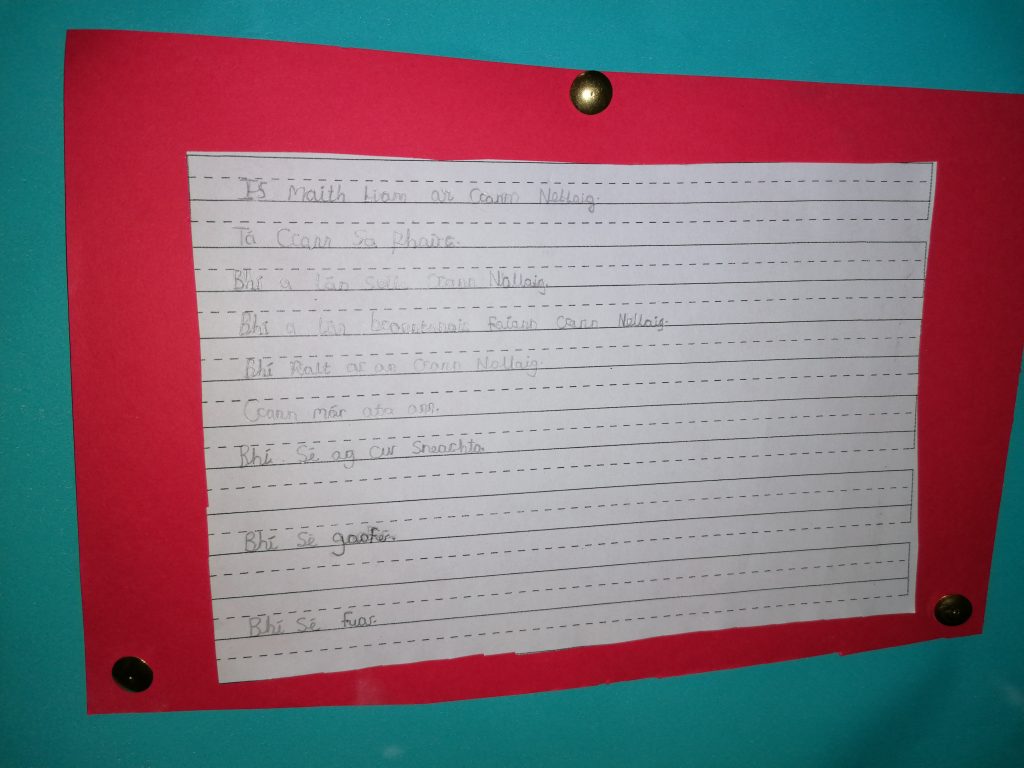 Is Maith Liom ar Crann Nollaig.
Tá Crann Sa Pháirc.
Bhí a lán soilse Crann Nollaig.
Bhí a lán bronntanais Crann Nollaig.
Bhí Ralt ar an Crann Nollaig.
Crann mór ata ann.
Bhí Sé ag cur Sneachta.
Bhí Sé
Bhí Sé fuar.